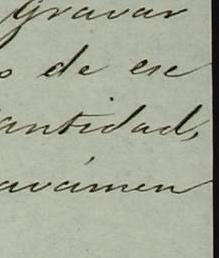 gravar
s de ese
cantidad,
avámen